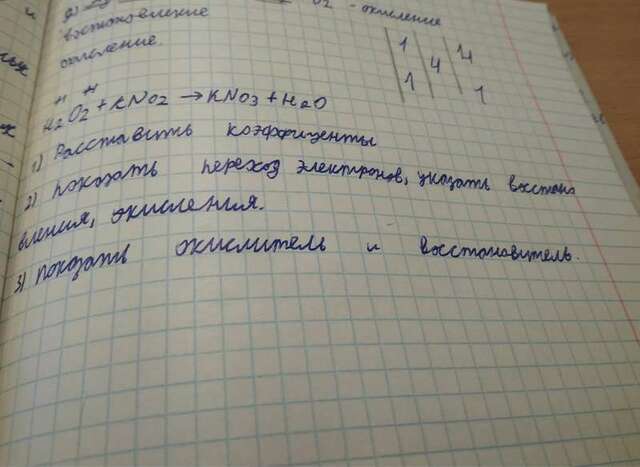 O2 - окисление
восстановление
окисление.
1 4
4
1 1
H2O2 + KNO2 → KNO3 + H2O
1) Расставить коэффиценты
2) показать переход электронов, указать восстано
вления, окисления.
3) показать окислитель и восстановитель.